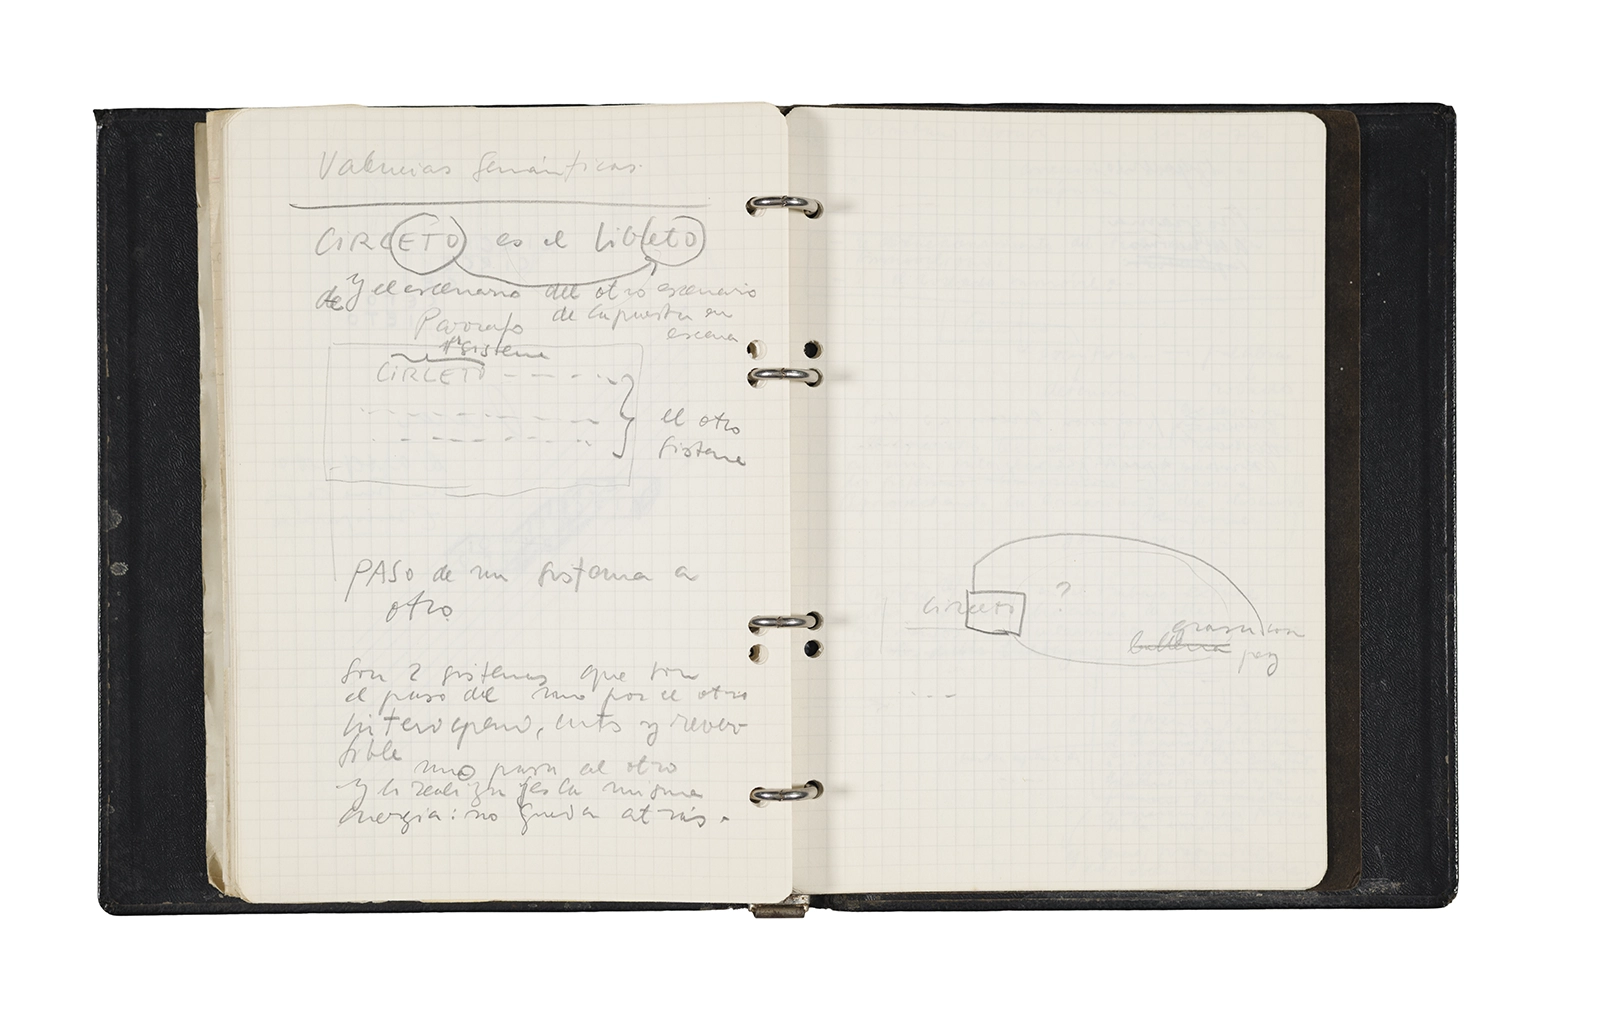 Valencias Semánticas.
CIRCETO es el libreto
de y el escenario del otro escenario
de la puesta en
escena
Párrafo
1er sistema
CIRCETO - - - - -
el otro
sistema
PASO de un sistema a
otro
Son 2 sistemas que son
el paso del uno por el otro
y rever-
sible
uno pasa al otro
y lo realiza es la misma
energía: no queda atrás.
Circeto ?
grasa con
pez
- - -